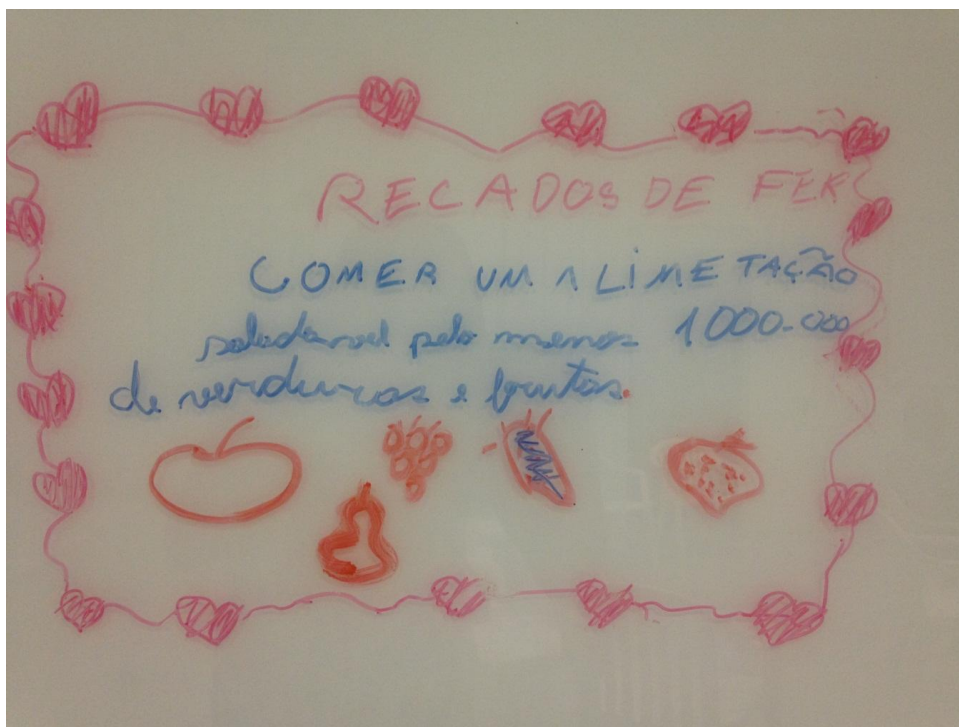 RECADOS DE FER
COMER UM ALIMETAÇÃO
saladavel pelo menos 1000.000
de verduras e frutas.